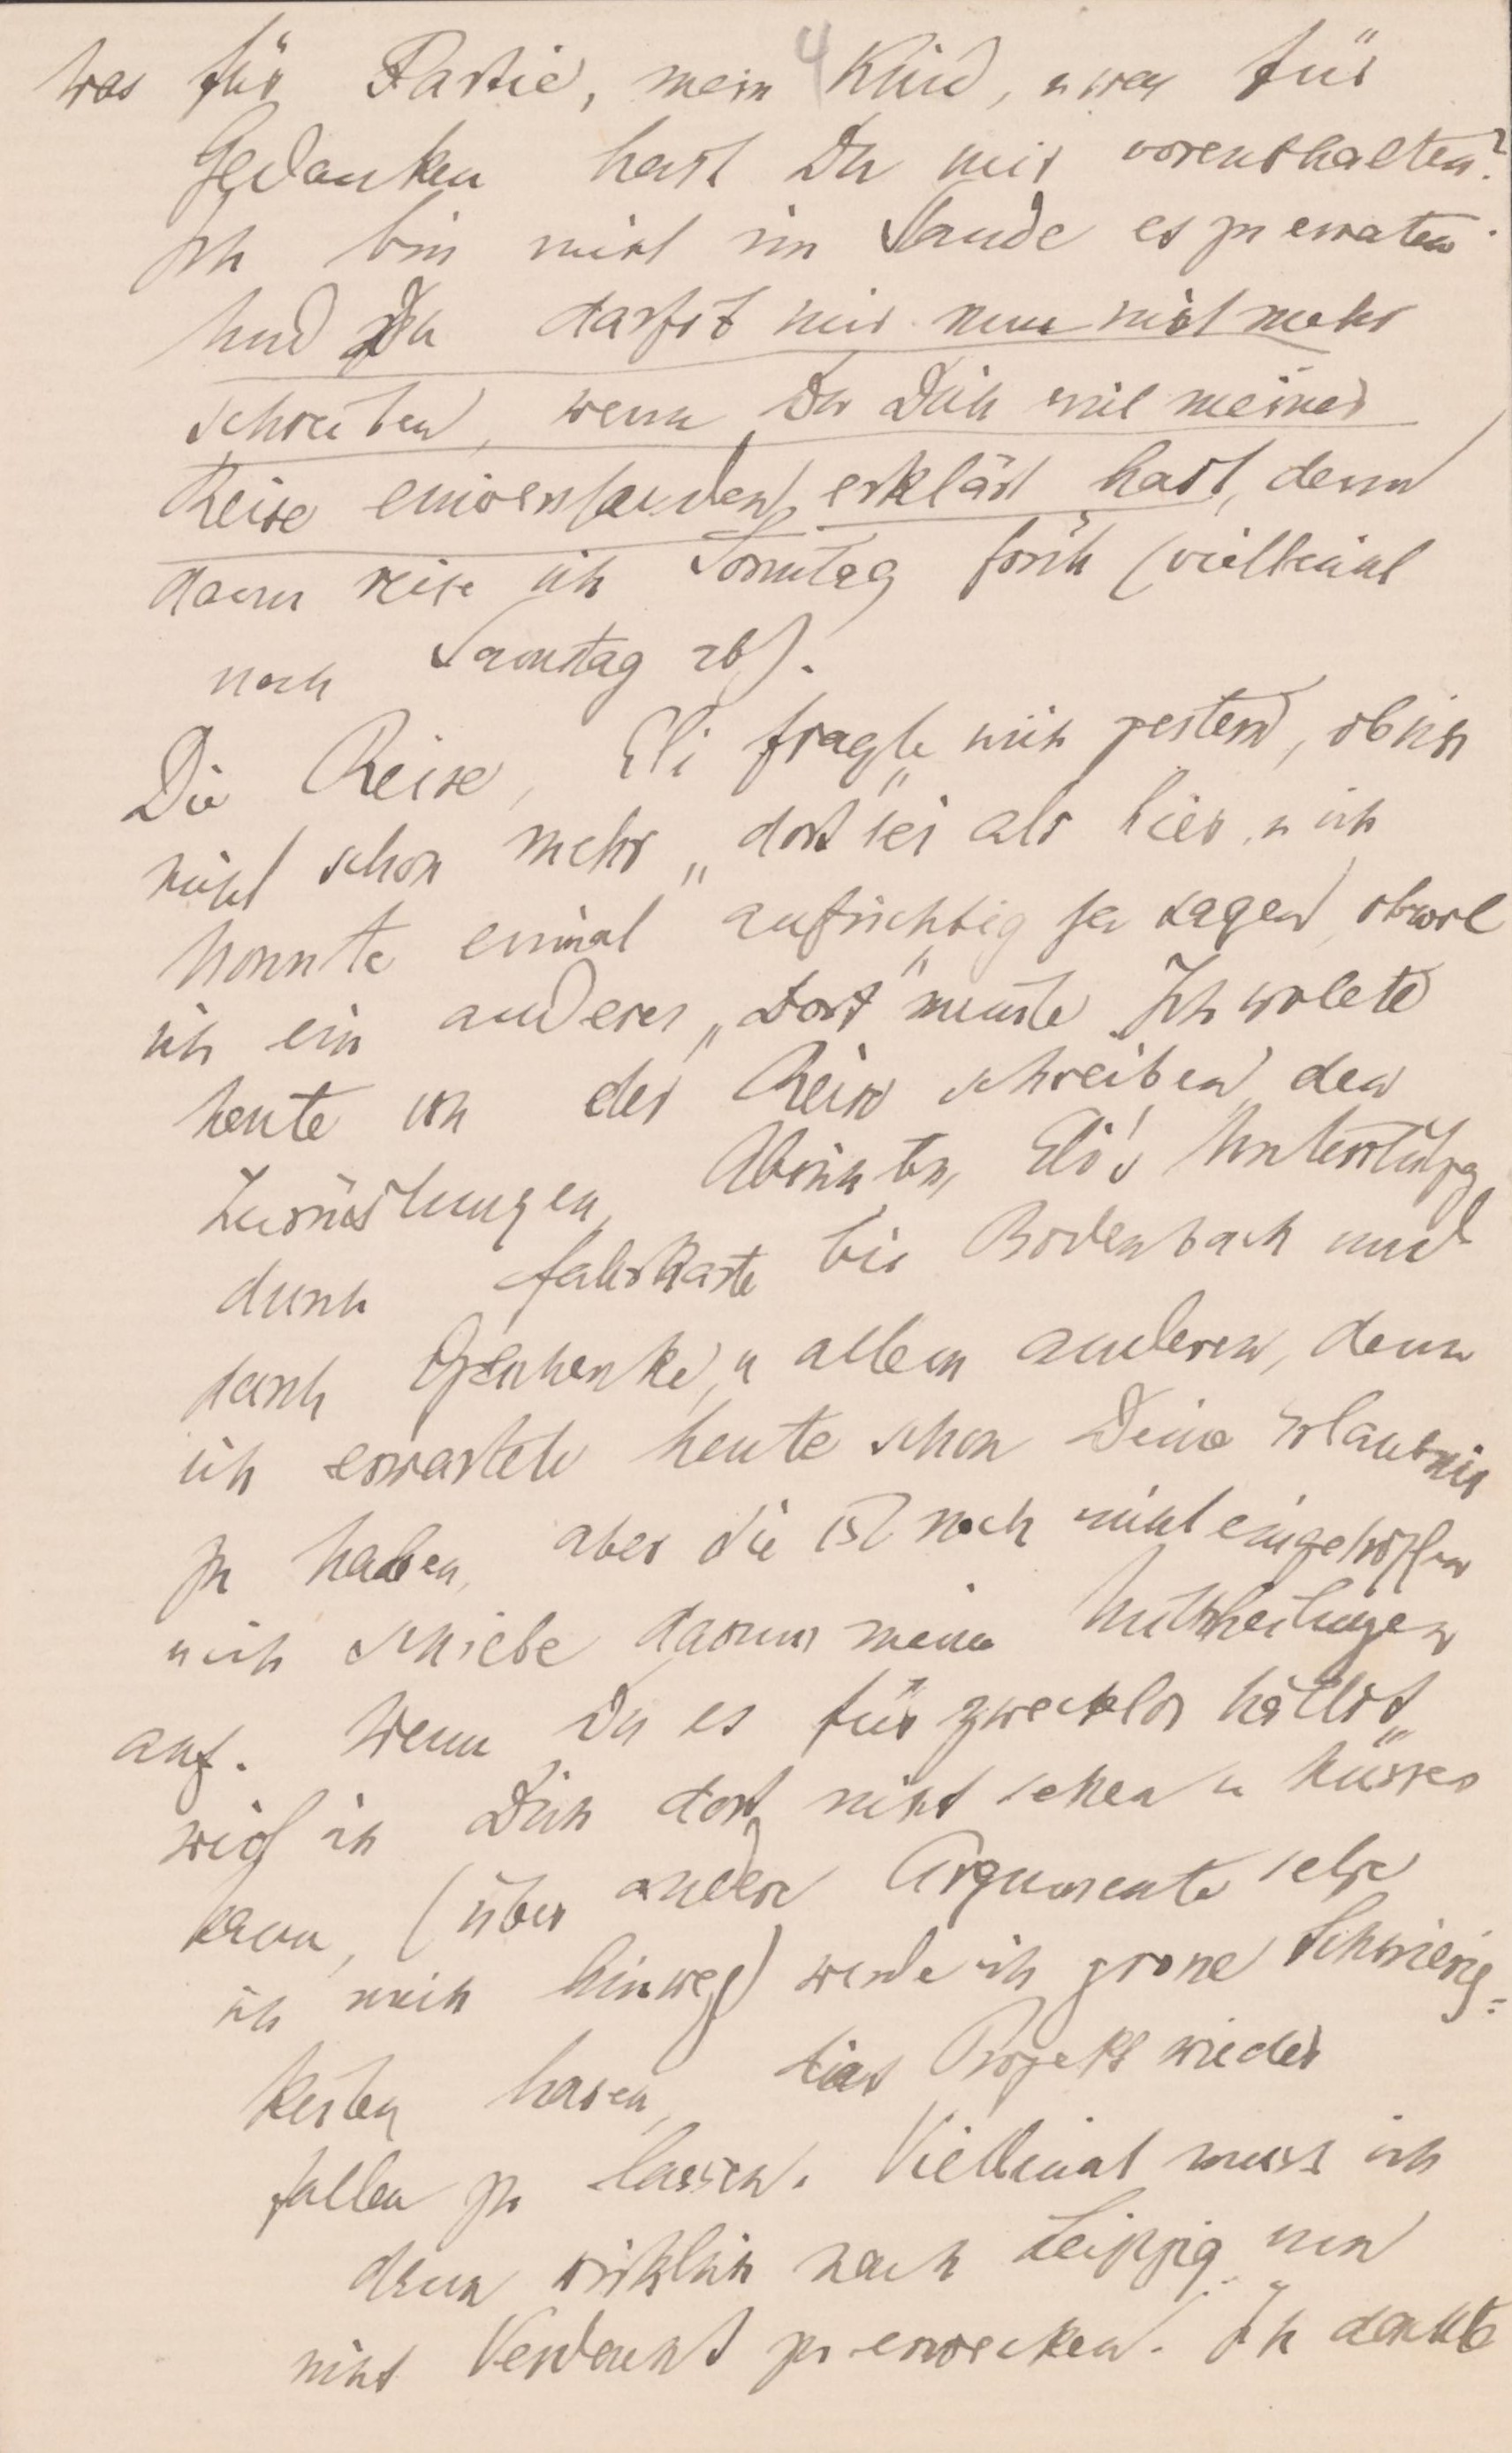 4
was für Partie, mein Kind, u was für
Gedanken hast Du mir vorenthalten?
Ich bin nicht im Stande es zu erraten.
Und Du darfst mir nun nicht mehr
schreiben, wenn Du Dich mit meiner
Reise einverstanden erklärt hast, denn
dann reise ich Sonntag früh (vielleicht
noch Samstag ab).
Die Reise, Eli fragte mich gestern, ob ich
nicht schon mehr „dort" sei als hier, u ich
konnte einmal aufrichtig ja sagen, obwol
ich ein anderes „Dort" meinte. Ich wollte
heute von der Reise schreiben, den
Zurüstungen, Absichten, Eli's Unterstützg
durch Fahrkarte bis Bodenbach und
durch Geschenke, u allem anderen, denn
ich erwartete heute schon Deine Erlaubnis
zu haben, aber die ist noch nicht eingetroffen
u ich schiebe darum meine Mittheilungen
auf. Wenn Du es für zwecklos hältst,
weil ich Dich dort nicht sehen u küssen
kann, (über andere Argumente setze
ich mich hinweg) werde ich grosse Schwierig=
keiten haben, das Projekt wieder
fallen zu lassen. Vielleicht muss ich
dann wirklich nach Leipzig um
nicht Verdacht zu erwecken. Ich dachte